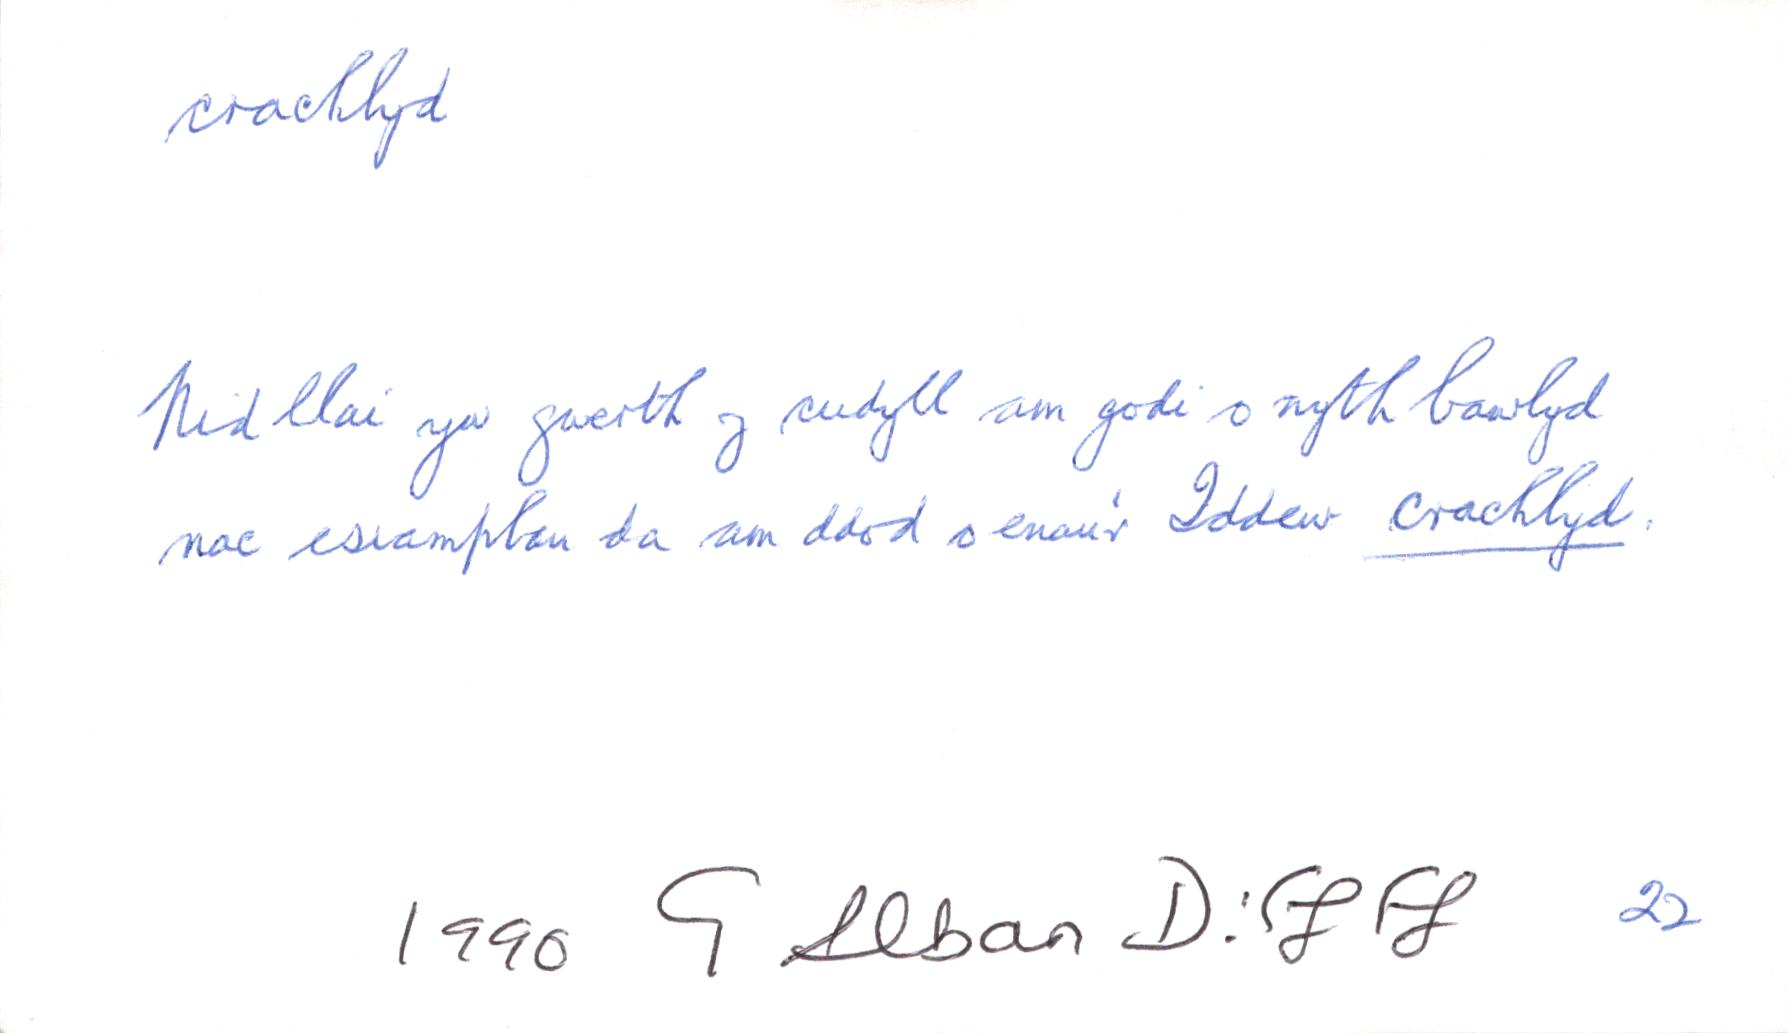 crachlyd
Nid llai yw gwerth y cudyll am godi o nyth bawlyd
nac esiamplau da am ddod o enau'r Iddew crachlyd.
1990 G Alban D:ff ff 22